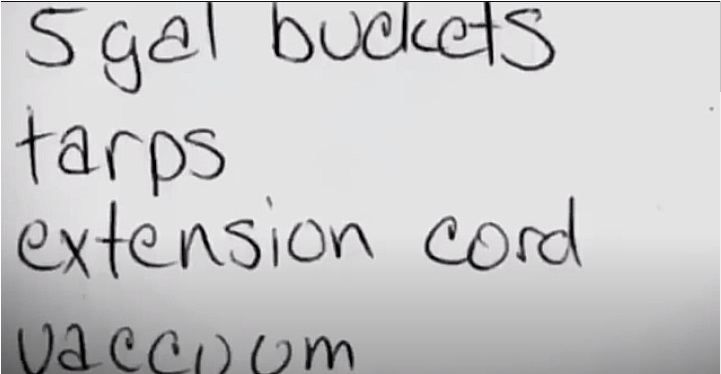 5 gal buckets
tarps
extension cord
vaccuum